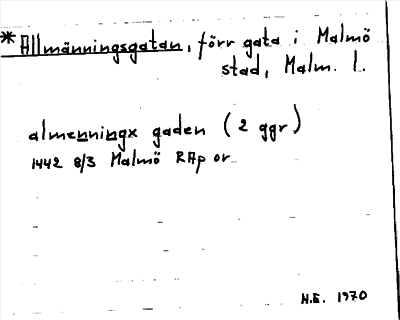 *Allmänningsgatan, förr gata i Malmö
stad, Malm. l.
almenningx gaden (2 ggr)
1442 8/3 Malmö RAp or
H.E. 1970